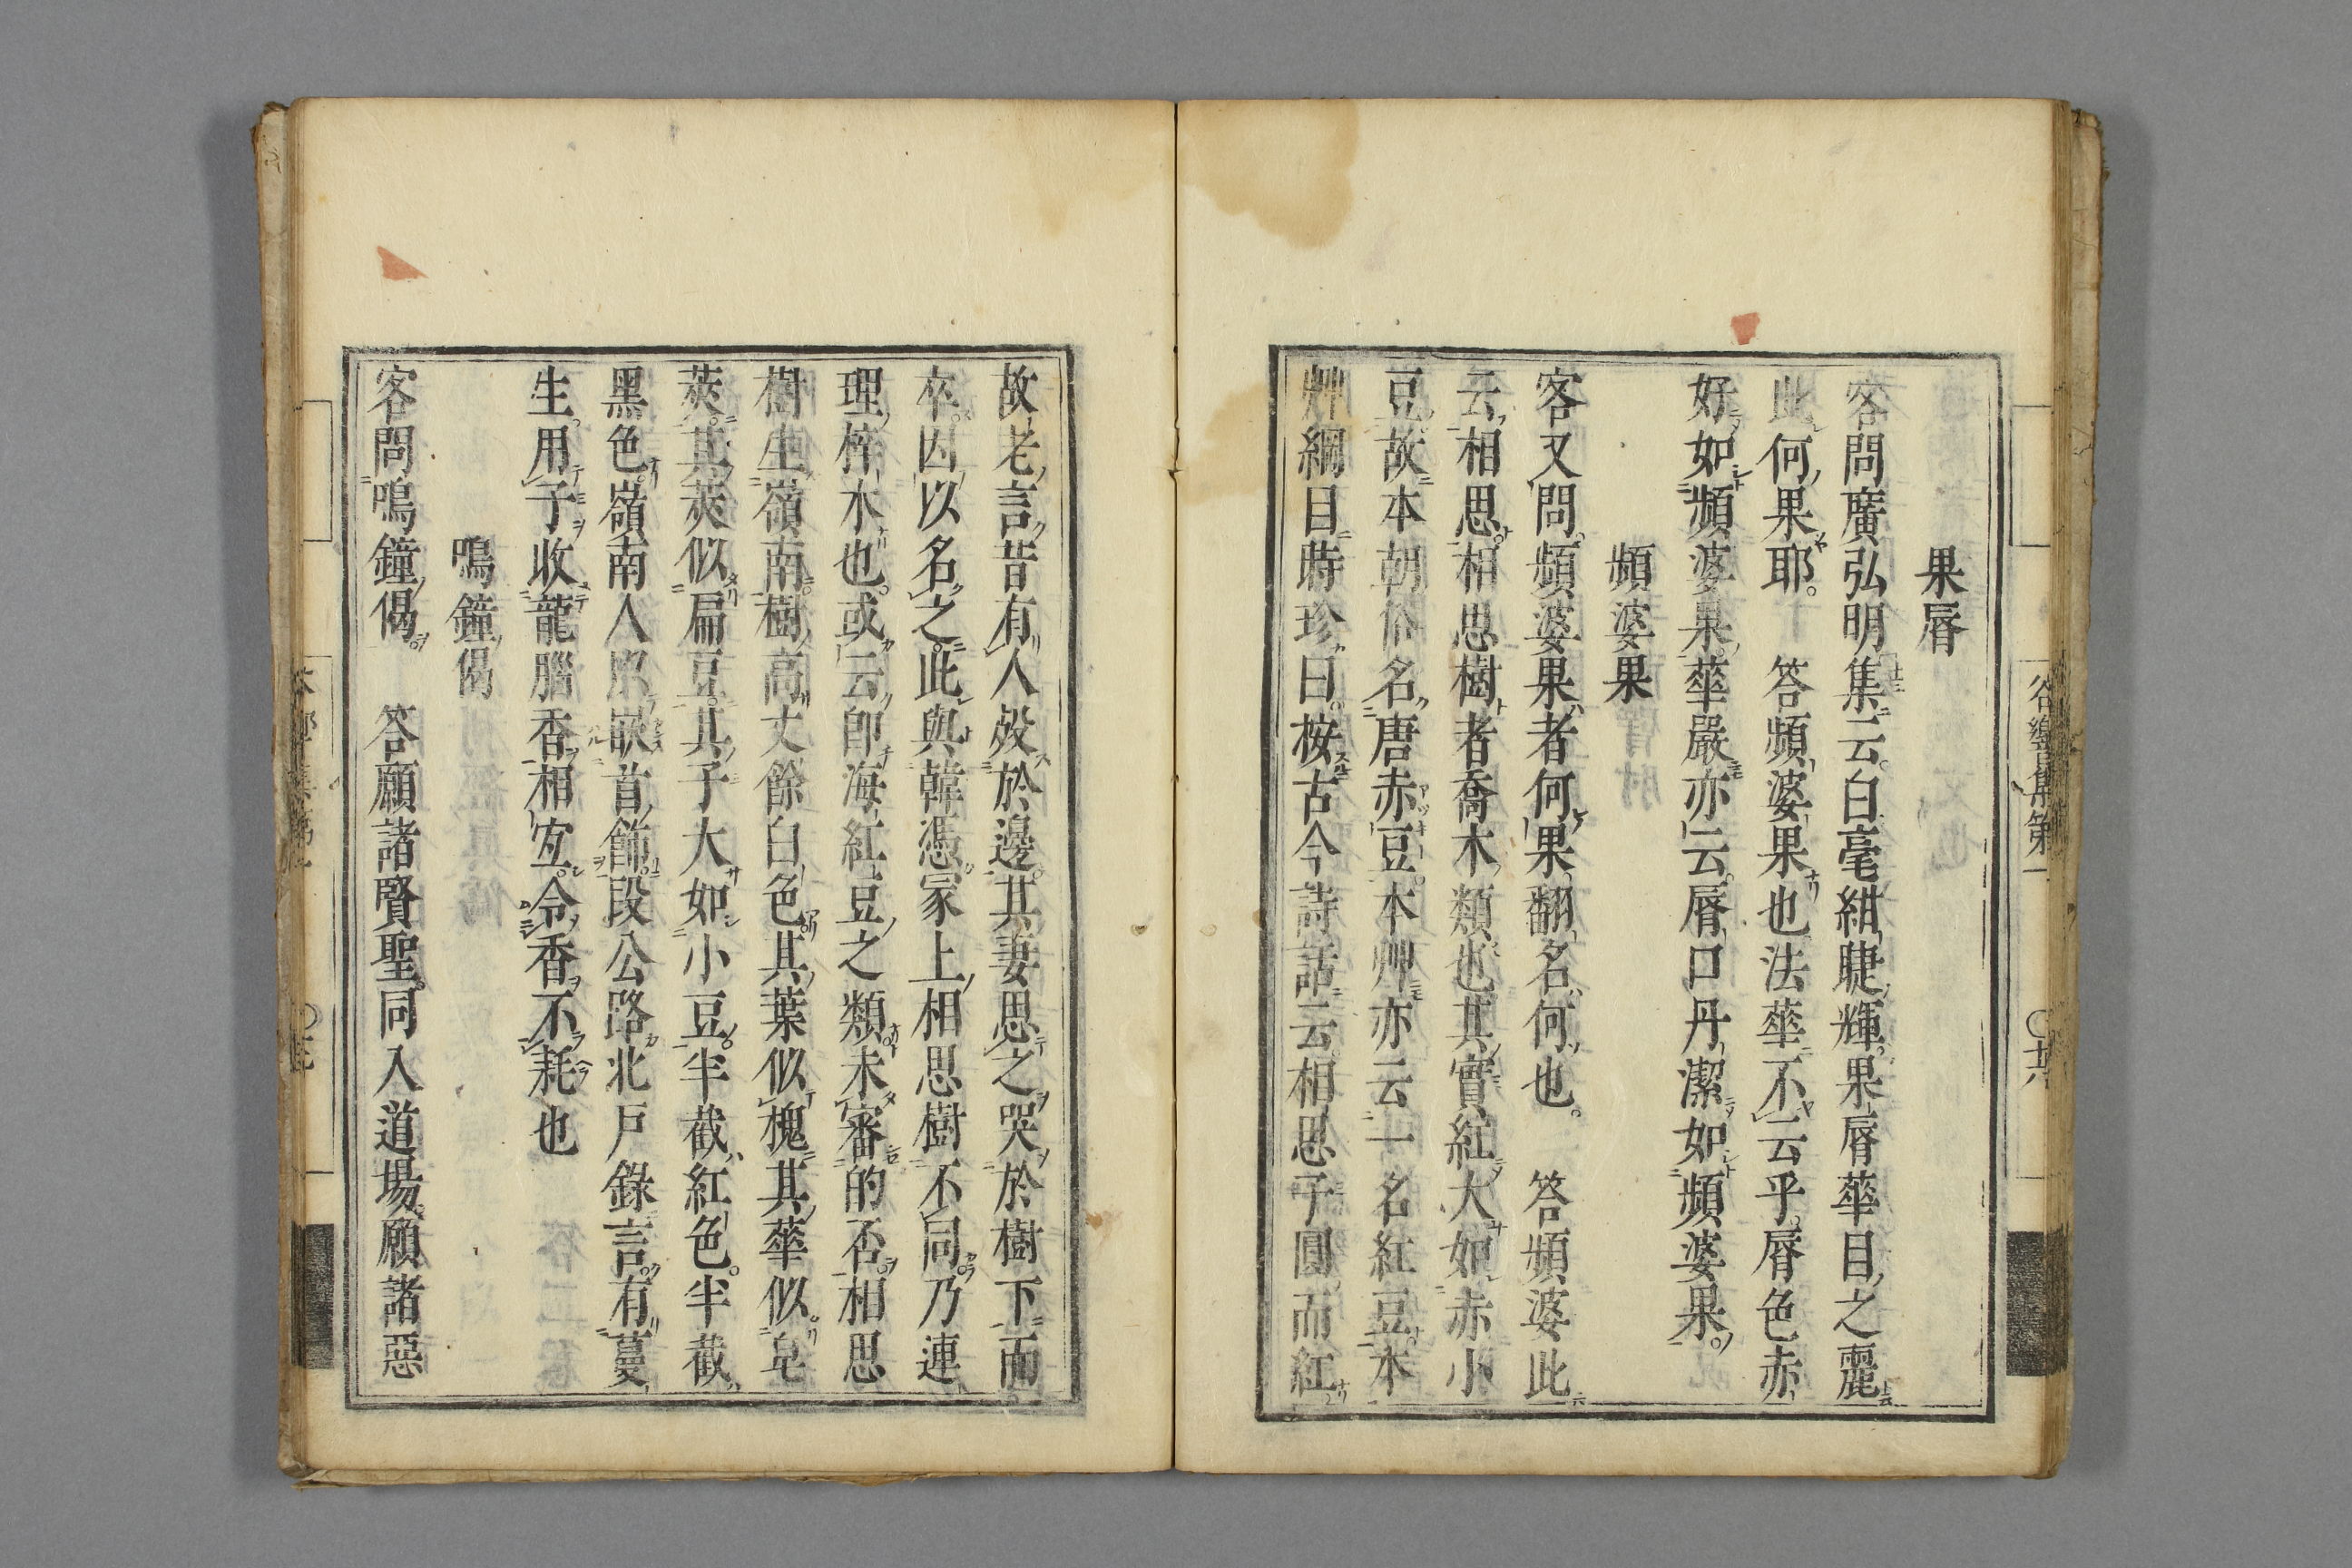 果脣
客問廣弘明集云白毫紺睫輝果脣華目之麗
此何果耶。 答頻婆果也法華不云乎脣色赤
好如頻婆果華嚴亦云脣口丹潔如頻婆果
頻婆果
客又問頻婆果者何果翻名何也。 答頻婆此
云相思相思樹者喬木類也其實紅大如赤小
豆故本朝俗名唐赤豆本艸亦云一名紅豆本
艸綱目蒔珍曰按古今詩話云相思子圓而紅
故老言昔有人歿於邊其妻思之哭於樹下而
卒因以名之此與韓憑冢上相思樹不同乃連
理梓木也或云卽海紅豆之類未審的否相思
樹生嶺南樹高丈餘白色其葉似槐其華似皂
莢其莢似扁豆其子大如小豆半截紅色半截
黑色嶺南人以嵌首飾段公路北戸錄言有蔓
生用子收龍腦香相宐令香不耗也
鳴鐘偈
客問鳴鐘偈 答願諸賢聖同入道場願諸惡